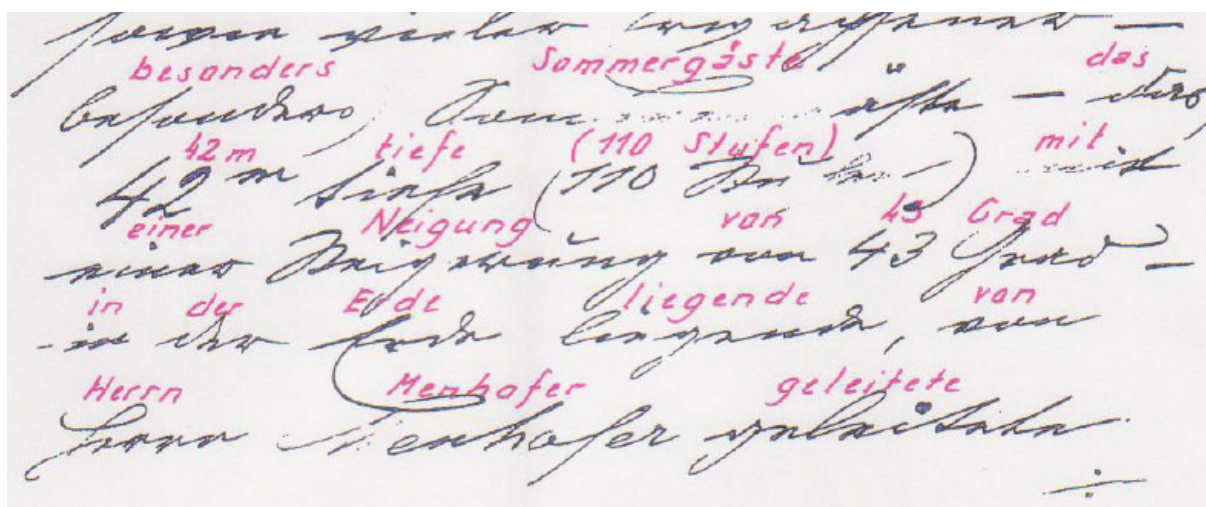 besonders Sommergäste das
besonders, Som äste – das
42m tiefe (110 Stufen) mit
42 m tiefe (110 ) mit
einer Neigung von 43 Grad
einer Neigerung von 43 Grad –
in der Erde liegende von
- in der Erde liegende, von
Herrn Menhofer geleitete
Herrn Menhofer geleitete